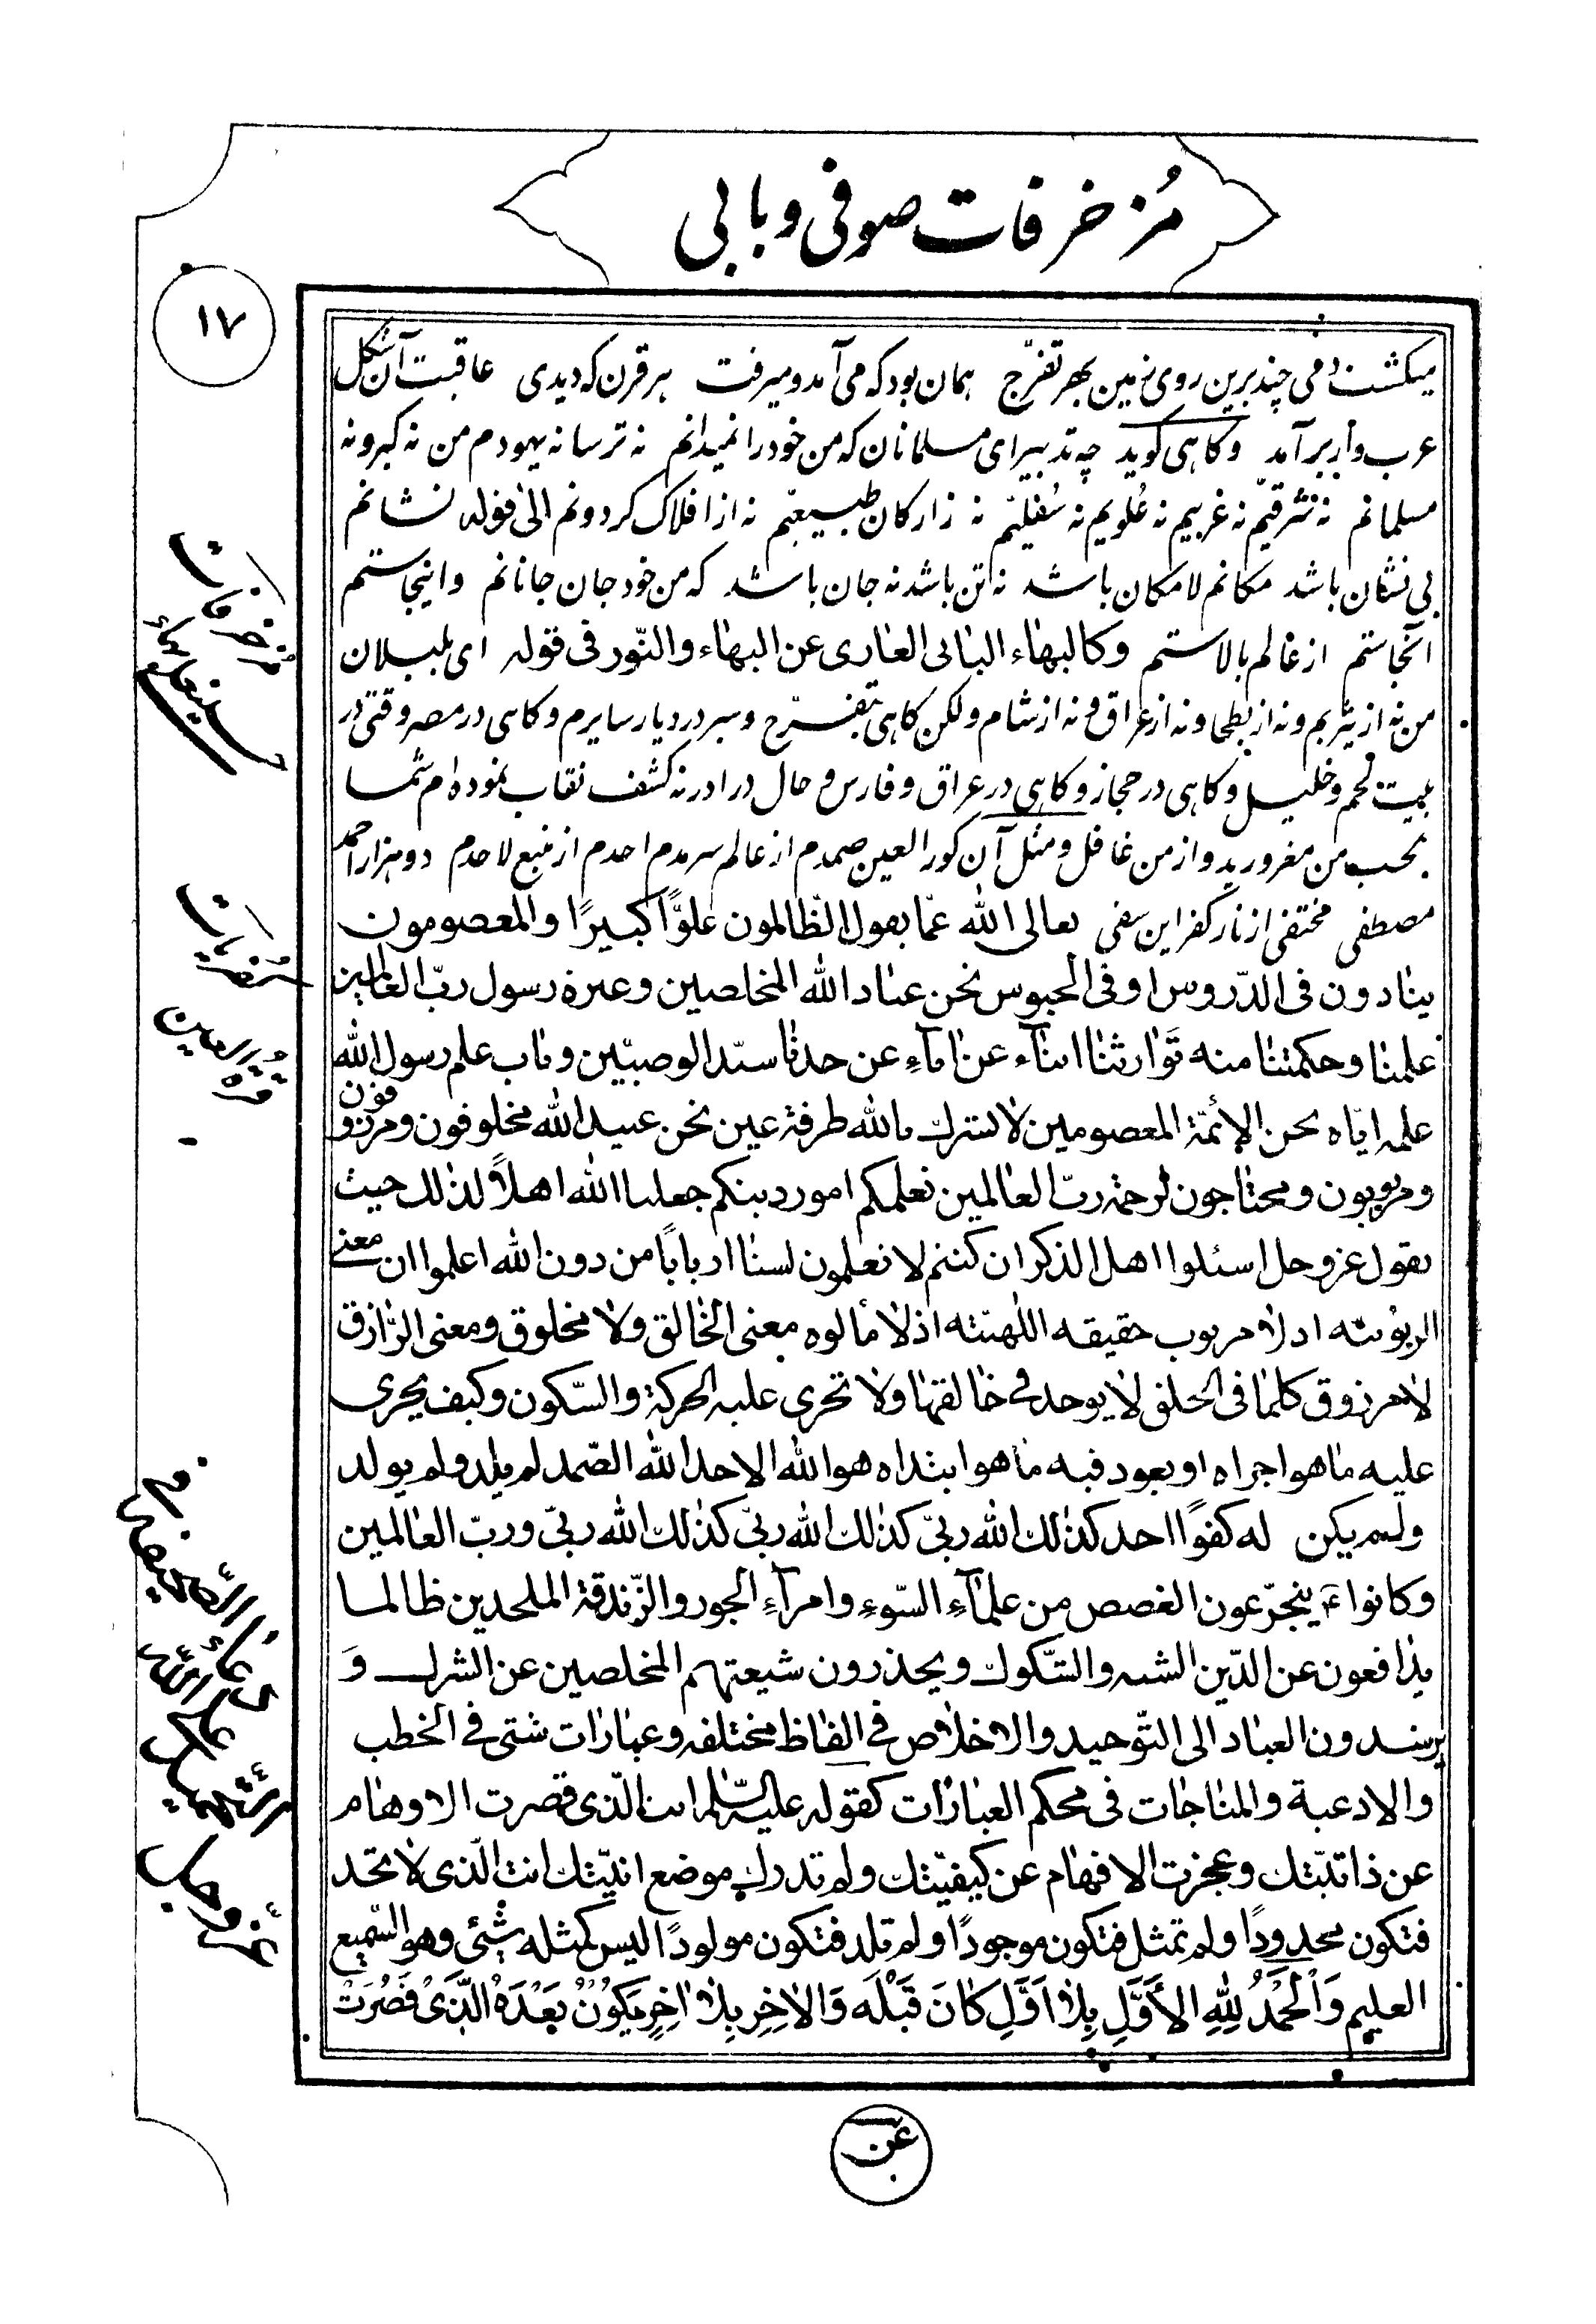 مُزخرفات صوفی و بابی
۱۷
میکشت دمی چند برین روی زمین بهر تفرّج همان بود که می آمد و میرفت هر قرن که دیدی عاقبت آن شکل
عرب وار برآمد و کاهی کوید چه تدبیر ای مسلمانان که من خود را نمیدانم نه ترسا نه یهودم من نه کبر و نه
مسلمانم نه شرقیّم نه غربیم نه عُلویم نه سُفلیّم نه ز ارکان طبیعیّم نه از افلاک کردونم الیٰ قوله نشانم
بی نشان باشد مکانم لامکان باشد نه تن باشد نه جان باشد که من خود جان جانانم و اینجاستم
آنجاستم از عالم بالاستم وکالبهاء البابی العاری عن البهاء والنّور فی قوله ای بلبلان
من نه از یثربم و نه از بطحا و نه از عراق و نه از شام ولکن کاهی بتفرّج و سیر در دیار سایرم و کاهی در مصر وقتی در
بیت لحم و خلیل و کاهی در حجاز و کاهی در عراق و فارس و حال در ادرنه کشف نقاب نموده‌ام شما
بحسب من مغرورید و از من غافل و مثل آن کور العین صمدم از عالم سرمدم احدم از منبع لاحدم دو هزار احمد
مصطفی مختفی از نار کفر این سفی تعالی الله عمّا یقول الظّالمون علوًّا کبیرًا والمعصومون
ینادون فی الدّروس او فی الحبوس نحن عباد الله المخلصین وعترة رسول ربّ العالمین
علمنا وحکمتنا منه توارثنا ابناء عن اٰباء عن جدنا سیّد الوصیّین وباب علم رسول الله
علمه ایّاه نحن الائمّة المعصومین لا نشرک بالله طرفة عین نحن عبید الله مخلوقون ومرزوقون
ومربوبون ومحتاجون لرحمة ربّ العالمین نعلمکم امور دینکم جعلنا الله اهلاً لذلک حیث
یقول عز وجل اسئلوا اهل الذکر ان کنتم لا تعلمون لسنا اربابًا من دون الله اعلموا ان معنی
الربوبیّه اذ لا مربوب حقیقه اللهیّته اذ لا مألوه معنی الخالق ولا مخلوق ومعنی الرّازق
لا مرزوق کلما فی الخلق لا یوجد فی خالقها ولا تجری علیه الحرکة والسّکون وکیف یجری
علیه ما هو اجراه او یعود فیه ما هو ابتداه هو الله الاحد الله الصّمد لم یلد ولم یولد
ولم یکن له کفوًا احد کذلک الله ربّی کذلک الله ربّی کذلک الله ربّی وربّ العالمین
وکانوا ع یتجرّعون الغصص من علمآء السّوء وامرآء الجور والزّندقة الملحدین ظالما
یدافعون عن الدّین الشبه والشّکوک ویحذرون شیعتهم المخلصین عن الشرک و
یرشدون العباد الی التّوحید والاخلاص فی الفاظ مختلفه وعبارات شتی فی الخطب
والادعیة والمناجات فی محکم العبارات کقوله علیه السّلم انت الّذی قصرت الاوهام
عن ذاتیّتک وعجزت الافهام عن کیفیّتک ولم تدرک موضع اینیّتک انت الّذی لا تحّد
فتکون محدودًا ولم تمثل فتکون موجودًا ولم تلد فتکون مولودًا لیس کمثله شئی وهو السّمیع
العلیم وَالْحَمْدُ لِلّٰهِ الأوَّلِ بِلا اَوَّلٍ کانَ قَبْلَه وَالاٰخِرِ بِلا اٰخِرٍ یَکُونُ بَعْدَهُ الَّذی قَصُرَتْ
مُزخرفات
مُزخرفات
قرّة العین
دعاء الصحیفه فی
التّحمید لله
عزّ وجل
عن